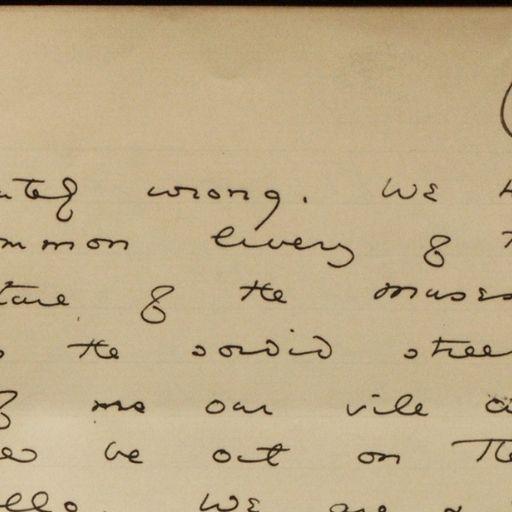 wrong. We
mmon livery of
of the muses
the sordid stree
me our vile
be out on The
We are